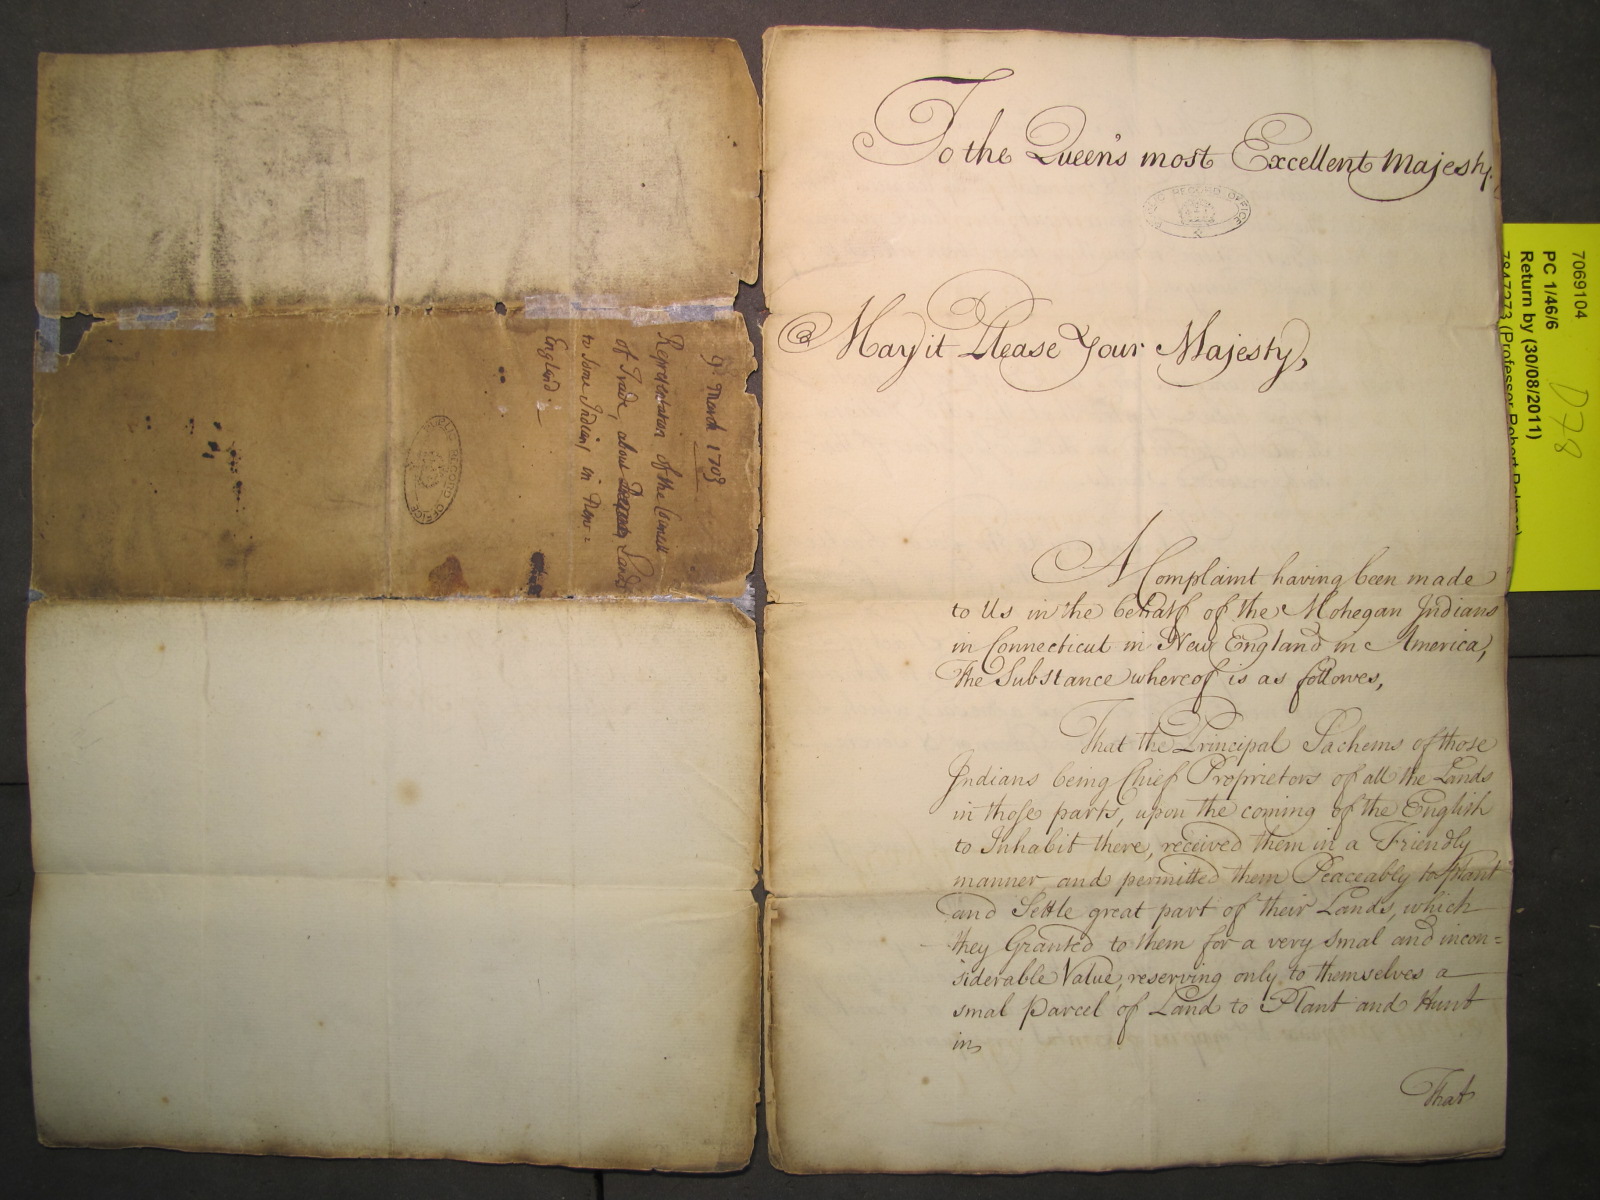 9th March 1703
Representation of the Councill
of Trade, about Lands
to Some Indians in New=
England.
PUBLIC RECORD OFFICE
To the Queen's most Excellent Majesty.
PUBLIC RECORD OFFICE
May it Please Your Majesty,
A Complaint having been made
to Us in the behalf of the Mohegan Indians
in Connecticut in New England in America,
the Substance whereof is as followes,
That the Principal Sachems of those
Indians being Chief Proprietors of all the Lands
in those parts, upon the coming of the English
to Inhabit there, received them in a Friendly
manner and permitted them Peaceably to Plant
and Settle great part of their Lands, which
they Granted to them for a very smal and incon=
siderable Value, reserving only to themselves a
smal parcel of Land to Plant and Hunt
in,
That
7069104
PC 1/46/6
Return by (30/08/2011)
7847273 (Professor Robert Palmer)
D78